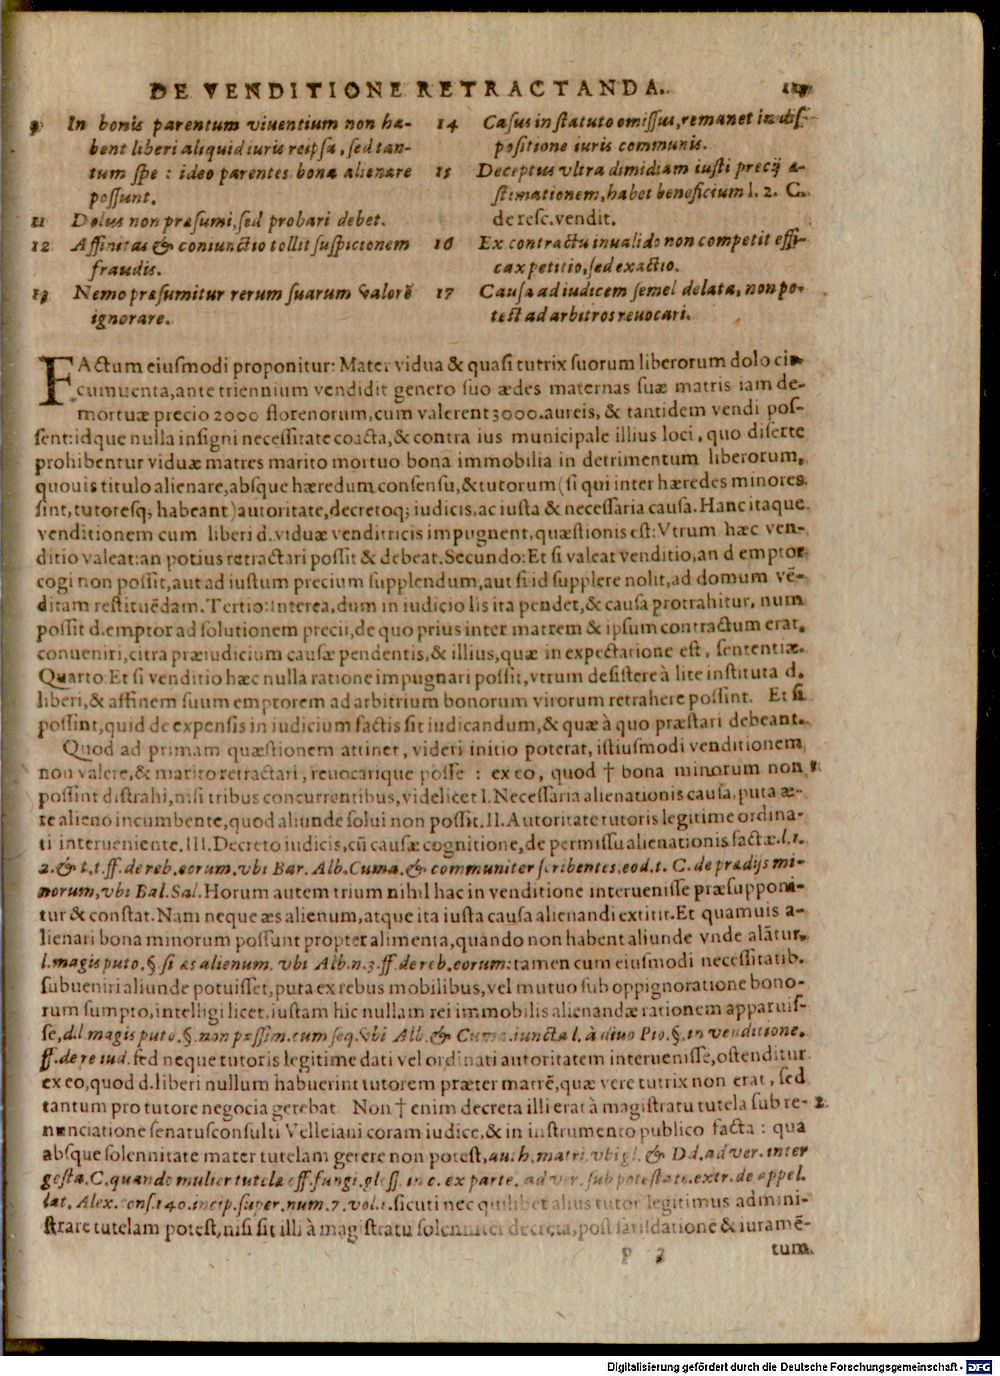 DE VENDITIONE RETRACTANDA.
9 In bonis parentum viuentium non ha-
bent liberi aliquid iuris reipsa, sed tan-
tum spe: ideo parentes bona alienare
possunt.
11 Dolus non præsumi, sed probari debet.
12 Affinitas & coniunctio tollit suspicionem
fraudis.
13 Nemo præsumitur rerum suarum valorē
ignorare.
14 Casus in statuto omissus, remanet in dis-
positione iuris communis.
15 Deceptus vltra dimidiam iusti precij æ-
stimationem, habet beneficium l. 2. C.
de resc. vendit.
16 Ex contractu inualido non competit effi-
cax petitio, sed exactio.
17 Causa ad iudicem semel delata, non po-
test ad arbitros reuocari.
FActum eiusmodi proponitur: Mater vidua & quasi tutrix suorum liberorum dolo cir-
cumuenta, ante triennium vendidit genero suo ædes maternas suæ matris iam de-
mortuæ precio 2000 florenorum, cum valerent 3000. aureis, & tantidem vendi pos-
sent: idque nulla insigni necessitate coacta, & contra ius municipale illius loci, quo diserte
prohibentur viduæ matres marito mortuo bona immobilia in detrimentum liberorum,
quouis titulo alienare, absque hæredum consensu, & tutorum (si qui inter hæredes minores
sint, tutoresq; habeant) autoritate, decretoq; iudicis, ac iusta & necessaria causa. Hanc itaque
venditionem cum liberi d. viduæ venditricis impugnent, quæstionis est: Vtrum hæc ven-
ditio valeat: an potius retractari possit & debeat. Secundo: Et si valeat venditio, an d emptor
cogi non possit, aut ad iustum precium supplendum, aut si id supplere nolit, ad domum vē-
ditam restituēdam. Tertio: Interea, dum in iudicio lis ita pendet, & causa protrahitur, num
possit d. emptor ad solutionem precii, de quo prius inter matrem & ipsum contractum erat,
conueniri, citra præiudicium causæ pendentis, & illius, quæ in expectatione est, sententiæ.
Quarto Et si venditio hæc nulla ratione impugnari possit, vtrum desistere à lite instituta d.
liberi, & affinem suum emptorem ad arbitrium bonorum virorum retrahere possint. Et si
possint, quid de expensis in iudicium factis sit iudicandum, & quæ à quo præstari debeant.
Quod ad primam quæstionem attinet, videri initio poterat, istiusmodi venditionem
non valere, & marito retractari, reuocarique posse: ex eo, quod † bona minorum non
possint distrahi, nisi tribus concurrentibus, videlicet I. Necessaria alienationis causa, puta æ-
re alieno incumbente, quod aliunde solui non possit. II. Autoritate tutoris legitime ordina-
ti interueniente. III. Decreto iudicis, cū causæ cognitione, de permissu alienationis factæ. l. 1.
2. & t. t. ff. de reb. eorum, vbi Bar. Alb. Cuma. & communiter scribentes. eod. t. C. de prædijs mi-
norum, vbi Bal. Sal. Horum autem trium nihil hac in venditione interuenisse præsupponi-
tur & constat. Nam neque æs alienum, atque ita iusta causa alienandi extitit. Et quamuis a-
lienari bona minorum possunt propter alimenta, quando non habent aliunde vnde alātur,
l. magis puto. §. si æs alienum. vbi Alb. n. 3. ff. de reb. eorum: tamen cum eiusmodi necessitatib.
subueniri aliunde potuisset, puta ex rebus mobilibus, vel mutuo sub oppignoratione bono-
rum sumpto, intelligi licet, iustam hic nullam rei immobilis alienandæ rationem apparuis-
se, d. l. magis puto. §. non passim. cum seq. vbi Alb. & Cuma. iuncta l. à diuo Pio. §. in venditione.
ff. de re iud. sed neque tutoris legitime dati vel ordinati autoritatem interuenisse, ostenditur
ex eo, quod d. liberi nullum habuerint tutorem præter matrē, quæ vere tutrix non erat, sed
tantum pro tutore negocia gerebat. Non † enim decreta illi erat à magistratu tutela sub re- 2.
nunciatione senatusconsulti Velleiani coram iudice, & in instrumento publico facta: qua
absque solennitate mater tutelam gerere non potest, au. h. matri. vbi gl. & Dd. ad ver. inter
gesta. C. quando mulier tutelæ off. fungi. gloss. in c. ex parte. ad ver. sub potestate. extr. de appel-
lat. Alex. cons. 140. incip. super. num. 7. vol. 1. sicuti nec quilibet alius tutor legitimus admini-
strare tutelam potest, nisi sit illi à magistratu solenniter decreta, post satisdatione & iuramē-
P 3 tum.
Digitalisierung gefördert durch die Deutsche Forschungsgemeinschaft - DFG